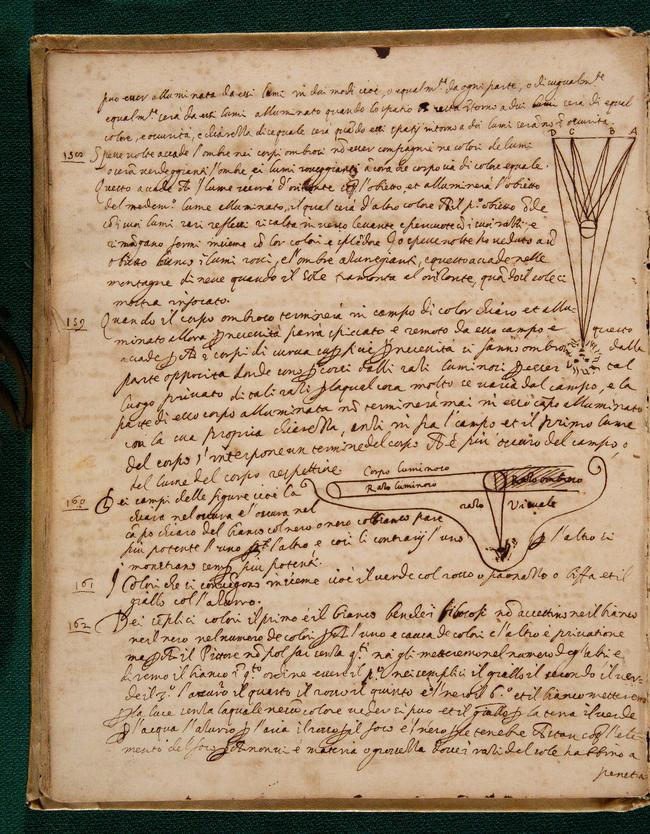 può esser alluminata da essi lumi in dui modi cioè, o equalm.te da ogni parte, o disequalm.te
equalm.te serà da essi lumi alluminato quando lo spatio intorno a dui lumi serà di equal
colore, e oscurità, e chiarezza disequale serà quãdo essi spatij intorno a dui lumi
D C B A
158 Spesse volte accade l'ombre nei corpi ombrosi nõ esser compagne ne colori de lumi
o serãn verdeggianti l'ombre, e i lumi rosseggianti ancora che il corpo sia di color equale.
Questo accade lume verrà d'oriente l'obietto, et alluminerà l'obietto
del medem.o lume alluminato, il qual serà d'altro colore p.o obietto
suoi lumi reflessi risalta inverso levante e percuote suoi razzi e
rimãgano fermi insieme lor colori e splẽdore Io spesse volte ho veduto
obietto bianco i lumi rossi, e l'ombre azureggianti, e questo accade nelle
montagne di neve quando il Sole tramonta al orizonte, quãdo il sole si
mostra infocato.
159 Quando il corpo ombroso terminerà in campo di color chiaro et allu-
minato allora necessità parrà spiccato e remoto da esso campo e questo
accade corpi di curva necessità si fanno ombrosi dalla
parte opposita donde percossi dalli razi luminosi esser tal
luogo privato di tali razi laqual cosa molto se varia dal campo, e la
parte di esso corpo alluminata nõ terminerà mai in esso cãpo alluminato
con la sua propria chiarezza, anzi in fra l'campo et il primo lume
del corpo s'interpone un termine del corpo è più oscuro del campo o
del lume del corpo respettive
Corpo luminoso
Razo luminoso
Razo ombroso
razo Visuale
160 Dei campi delle figure cioè la
chiara nel oscura e l'oscura nel
cãpo chiaro del bianco col nero o nero col bianco pare
più potente l'uno l'altro e così li contrarij l'uno l'altro si
monstrano semp. più potenti.
161 I Colori che si convẽgono insieme cioè il verde col rosso o paonazzo o biffa et il
giallo col l'azurro.
162 Dei semplici colori il primo è il bianco benche i filosofi nõ accettino ne il bianco
ne il nero nel numero de colori l'uno è causa de colori e l'altro e privatione
ma il Pittore nõ pol far senza q.ti noi gli metteremo nel numero degl'altri e
diremo il bianco q.to ordine esser il p.o nei semplici il giallo il secondo il ver-
de il 3.o l'azurro il quarto il rosso il quinto e l'nero il 6.o et il bianco metteremo
la luce senza laquale nessũ colore veder si può et il giallo la terra il verde
l'acqua l'azurro l'aria il rosso il foco e l'nero le tenebre l'ele-
mento del foco non vi è materia o grossezza dove i razi del sole habbino a
penetra